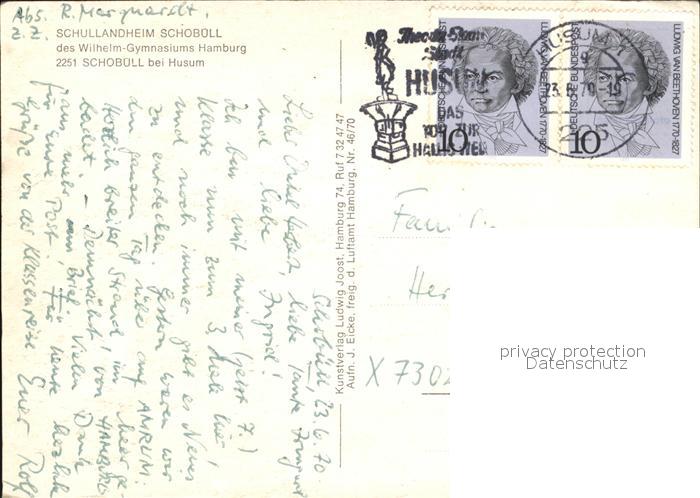 Abs. R. Marquardt.
z. Z.
SCHULLANDHEIM SCHOBÜLL
des Wilhelm-Gymnasiums Hamburg
2251 SCHOBÜLL bei Husum
Schobüll, 23.6.70
Liebe Tante Irmgard
und liebe Ingrid!
Ich bin mit meiner (jetzt 7.)
Klasse nun zum 3. Male hier,
und noch immer gibt es Neues
zu entdecken. Gestern waren wir
den ganzen Tag über auf AMRUM:
herrlich breiter Strand, im Meer ge-
badet! - Demnächst von HAMBURG
aus mehr, ein Brief. Vielen Dank
für Eure Post. Für heute herzliche
Grüße von der Klassenreise Euer Rolf
Kunstverlag Ludwig Joost, Hamburg 74, Ruf 7 32 47 47
Aufn. J. Eicke, freig. d. Luftamt Hamburg, Nr. 46/70
Theodor-Storm
Stadt
HUSUM
DAS
TOR ZUR
HALLIGEN
23.6.70-19
DEUTSCHE BUNDESPOST
LUDWIG VAN BEETHOVEN 1770-1827
10
DEUTSCHE BUNDESPOST
LUDWIG VAN BEETHOVEN 1770-1827
10
Fami
Her
X 7302
privacy protection
Datenschutz